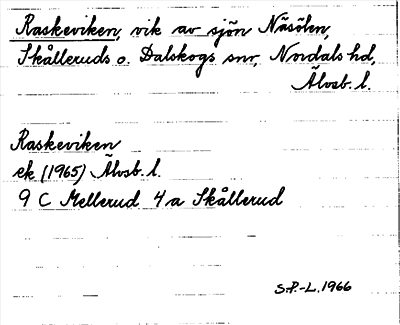 Raskeviken, vik av sjön Näsölen,
Skålleruds o. Dalskogs snr, Nordals hd,
Älvsb. l.
Raskeviken
ek (1965) Älvsb. l.
9 C Mellerud 4 a Skållerud
S.P.-L. 1966